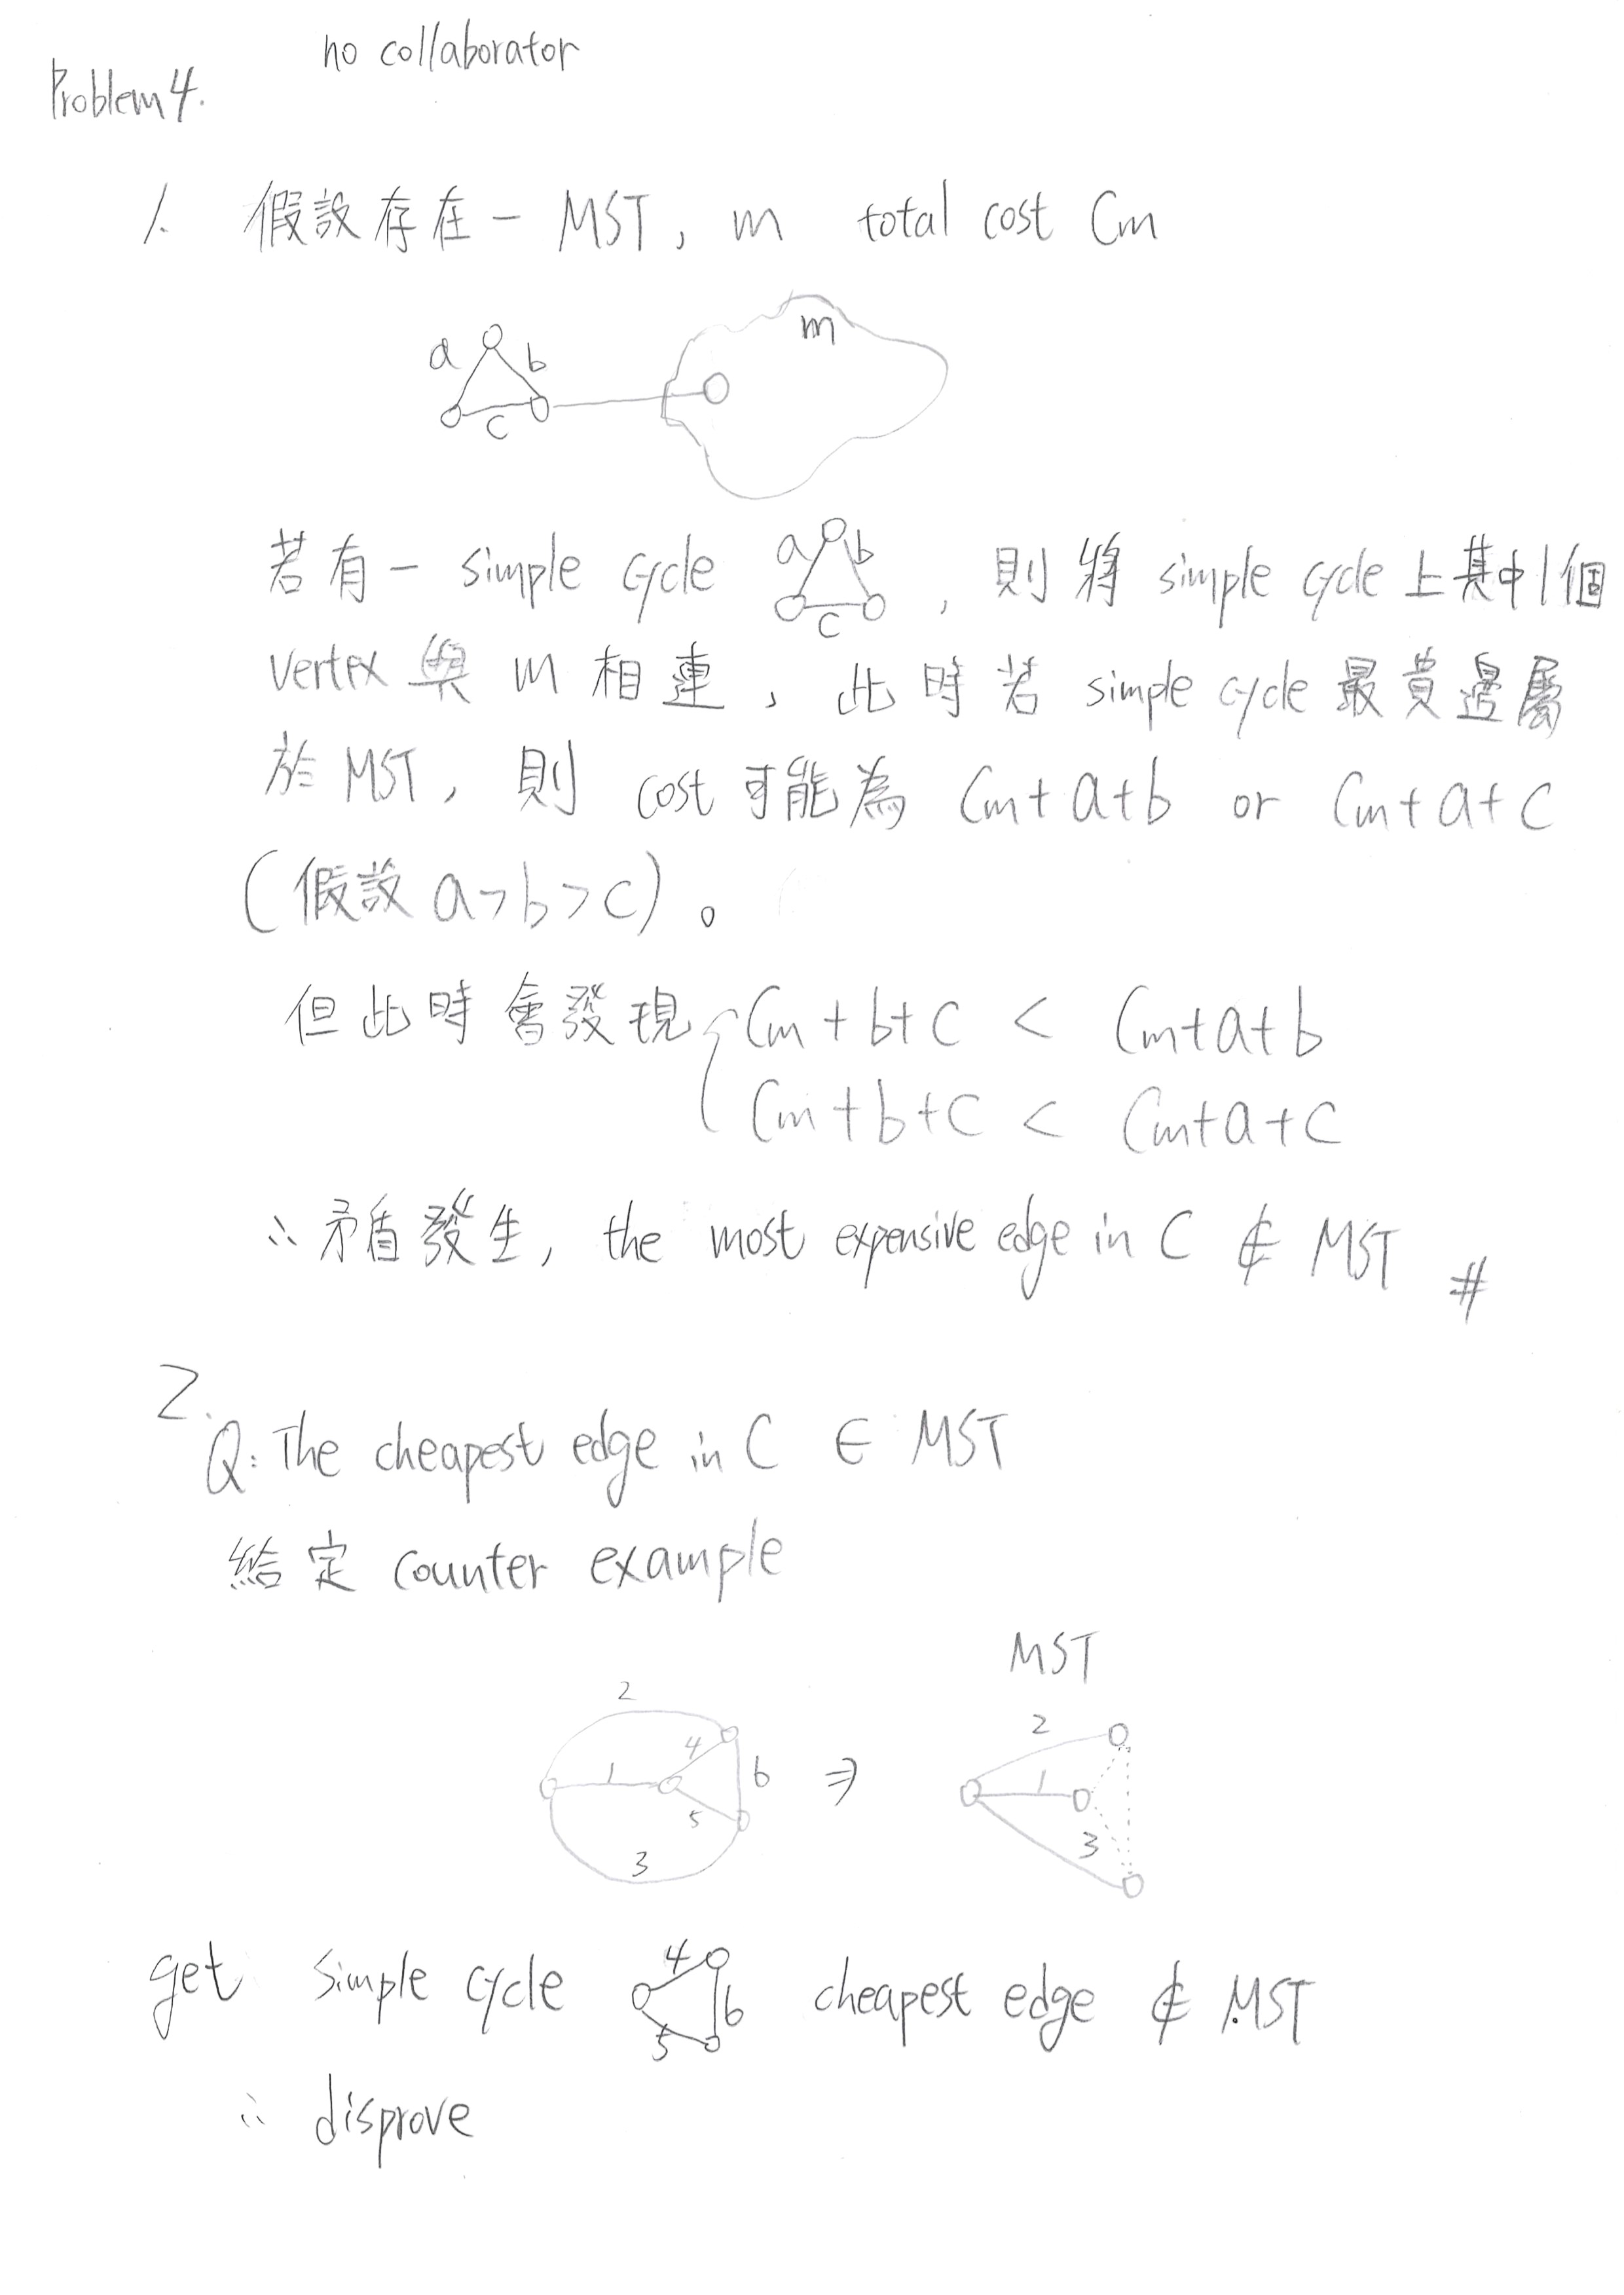 no collaborator
Problem 4.
1. 假設存在一 MST, m total cost Cm
m
a b
c
若有一 simple cycle a b c , 則將 simple cycle 上其中1個
vertex 與 m 相連, 此時若 simple cycle 最貴邊屬
於 MST, 則 cost 可能為 Cm+a+b or Cm+a+c
(假設 a>b>c)。
但此時會發現 { Cm+b+c < Cm+a+b
Cm+b+c < Cm+a+c
∴ 矛盾發生, the most expensive edge in C ∉ MST #
2.
Q: The cheapest edge in C ∈ MST
給定 counter example
MST
2 2
4
1 6 ⇒ 1
5
3 3
get simple cycle 4 6 5 cheapest edge ∉ MST
∴ disprove